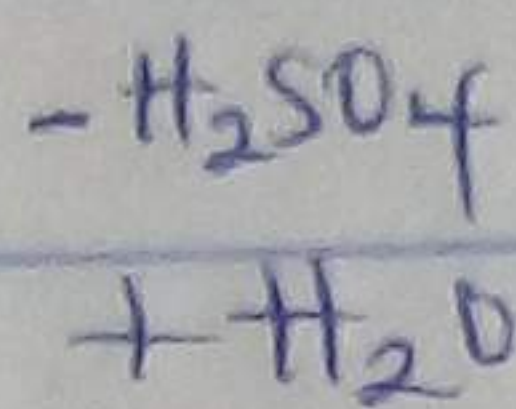 - H₂SO₄
+ H₂O